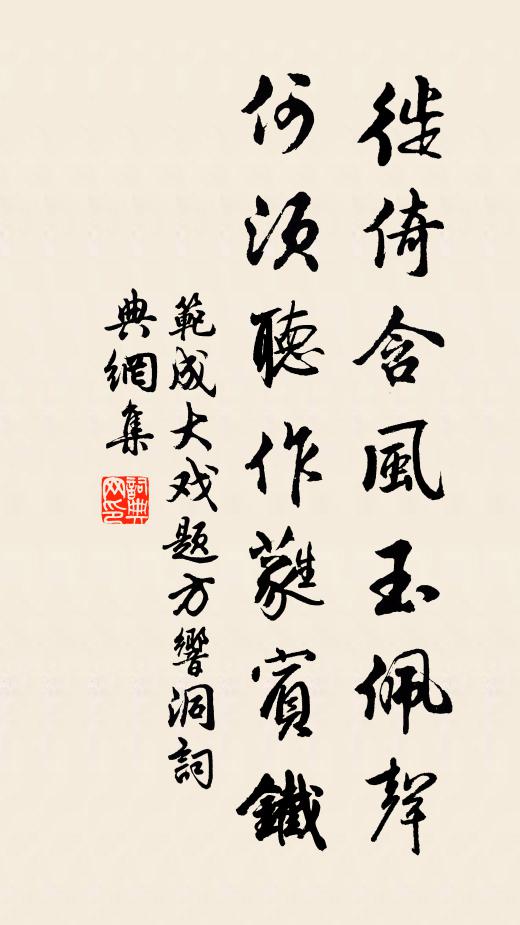 徙倚含風玉佩聲
何須聽作蕤賓鐵
範成大戏题方響洞詞
典網集
詞典网印